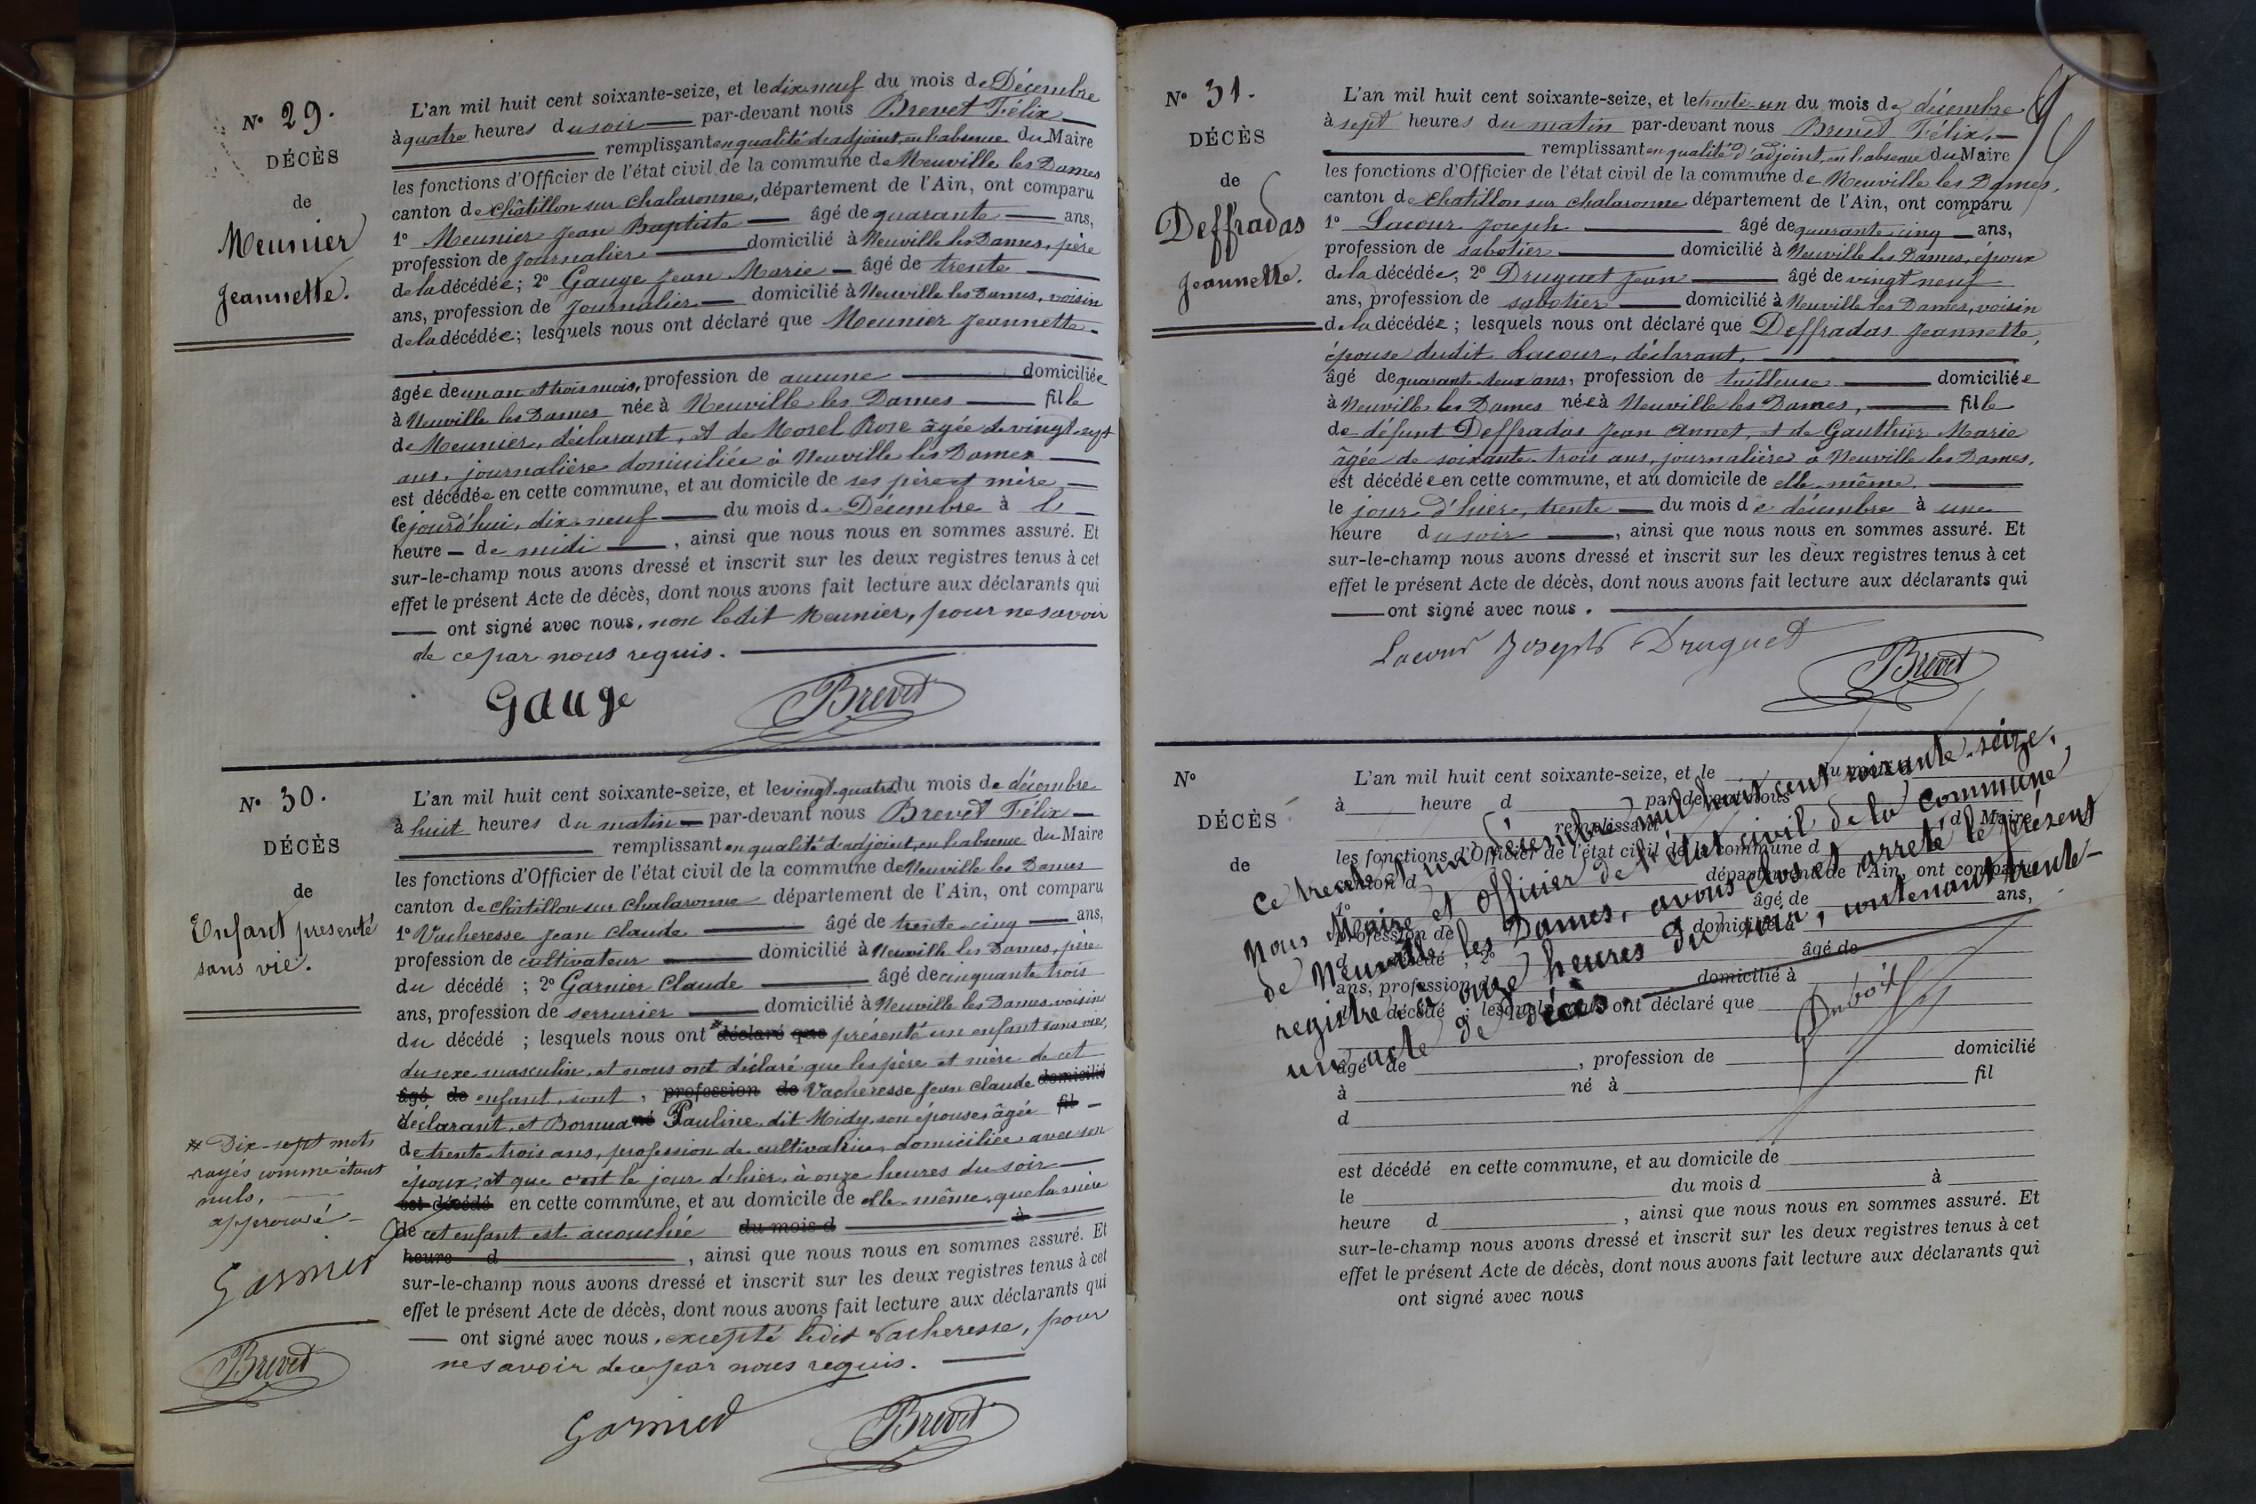 N° 29.
DÉCÈS
de
Meunier
Jeannette.
L'an mil huit cent soixante-seize, et le dix-neuf du mois de Décembre
à quatre heures du soir par-devant nous Brevet Félix
remplissant en qualité d'adjoint, en l'absence du Maire
les fonctions d'Officier de l'état civil de la commune de Neuville les Dames
canton de Châtillon sur Chalaronne, département de l'Ain, ont comparu
1° Meunier Jean Baptiste âgé de quarante ans,
profession de Journalier domicilié à Neuville les Dames, père
de la décédée; 2° Gauge Jean Marie âgé de trente
ans, profession de Journalier domicilié à Neuville les Dames, voisin
de la décédée; lesquels nous ont déclaré que Meunier Jeannette
âgée de un an et trois mois, profession de aucune domiciliée
à Neuville les Dames née à Neuville les Dames fille
de Meunier, déclarant, et de Morel Rose âgée de vingt-sept
ans, journalière domiciliée à Neuville les Dames
est décédée en cette commune, et au domicile de ses père et mère
ce jourd'hui, dix-neuf du mois de Décembre à l'
heure de midi, ainsi que nous nous en sommes assuré. Et
sur-le-champ nous avons dressé et inscrit sur les deux registres tenus à cet
effet le présent Acte de décès, dont nous avons fait lecture aux déclarants qui
ont signé avec nous, non ledit Meunier, pour ne savoir
de ce par nous requis.
Gauge Brevet
N° 30.
DÉCÈS
de
Enfant présenté
sans vie.
L'an mil huit cent soixante-seize, et le vingt-quatre du mois de décembre
à huit heures du matin par-devant nous Brevet Félix
remplissant en qualité d'adjoint, en l'absence du Maire
les fonctions d'Officier de l'état civil de la commune de Neuville les Dames
canton de Châtillon sur Chalaronne département de l'Ain, ont comparu
1° Vacheresse Jean Claude âgé de trente-cinq ans,
profession de cultivateur domicilié à Neuville les Dames, père
du décédé ; 2° Garnier Claude âgé de cinquante trois
ans, profession de serrurier domicilié à Neuville les Dames, voisin
du décédé ; lesquels nous ont déclaré que présenté un enfant sans vie,
du sexe masculin, et nous ont déclaré que les père et mère de cet
âgé de enfant, sont, profession de Vacheresse Jean Claude domicilié
déclarant, et né Pauline, dit Midy, son épouse, âgée fil
de trente trois ans, profession de cultivatrice, domiciliée avec son
époux; et que c'est le jour d'hier, à onze heures du soir
est décédé en cette commune, et au domicile de elle-même, que la mère
de cet enfant est accouchée du mois d à
heure d , ainsi que nous nous en sommes assuré. Et
sur-le-champ nous avons dressé et inscrit sur les deux registres tenus à cet
effet le présent Acte de décès, dont nous avons fait lecture aux déclarants qui
ont signé avec nous, excepté ledit Vacheresse, pour
ne savoir de ce par nous requis.
Garnier Brevet
Dix-sept mots
rayés comme étant
nuls,
approuvé
Garnier
Brevet
N° 31.
DÉCÈS
de
Deffradas
Jeannette.
L'an mil huit cent soixante-seize, et le trente-un du mois de décembre
à sept heures du matin par-devant nous Brevet Félix,
remplissant en qualité d'adjoint, en l'absence du Maire
les fonctions d'Officier de l'état civil de la commune de Neuville les Dames,
canton de Chatillon sur Chalaronne département de l'Ain, ont comparu
1° Lacour Joseph âgé de quarante-cinq ans,
profession de sabotier domicilié à Neuville les Dames, époux
de la décédée, 2° Druguet Jean âgé de vingt neuf
ans, profession de sabotier domicilié à Neuville les Dames, voisin
de la décédée ; lesquels nous ont déclaré que Deffradas Jeannette,
épouse dudit Lacour, déclarant,
âgé de quarante-deux ans, profession de tailleuse domiciliée
à Neuville les Dames née à Neuville les Dames, fille
de défunt Deffradas Jean Annet, et de Gauthier Marie
âgée de soixante-trois ans, journalière à Neuville les Dames,
est décédée en cette commune, et au domicile de elle-même,
le jour d'hier, trente du mois de décembre à une
heure du soir, ainsi que nous nous en sommes assuré. Et
sur-le-champ nous avons dressé et inscrit sur les deux registres tenus à cet
effet le présent Acte de décès, dont nous avons fait lecture aux déclarants qui
ont signé avec nous.
Lacour Joseph Druguet
Brevet
N°
DÉCÈS
de
L'an mil huit cent soixante-seize, et le du mois d
à heure d par-devant nous
remplissant d Maire
les fonctions d'Officier de l'état civil de la commune d
canton d département de l'Ain, ont comparu
1° âgé de ans,
profession de domicilié à
d décédé ; 2° âgé de
ans, profession d domicilié à
d décédé ; lesquels nous ont déclaré que
âgé de , profession de domicilié
à né à fil
d
est décédé en cette commune, et au domicile de
le du mois d à
heure d , ainsi que nous nous en sommes assuré. Et
sur-le-champ nous avons dressé et inscrit sur les deux registres tenus à cet
effet le présent Acte de décès, dont nous avons fait lecture aux déclarants qui
ont signé avec nous
Ce trente et un décembre mil huit cent soixante-seize,
Nous Maire et officier de l'état civil de la commune
de Neuville les Dames, avons clos et arreté le présent
registre à onze heures du soir, contenant trente-
un acte de décès.
Duboit